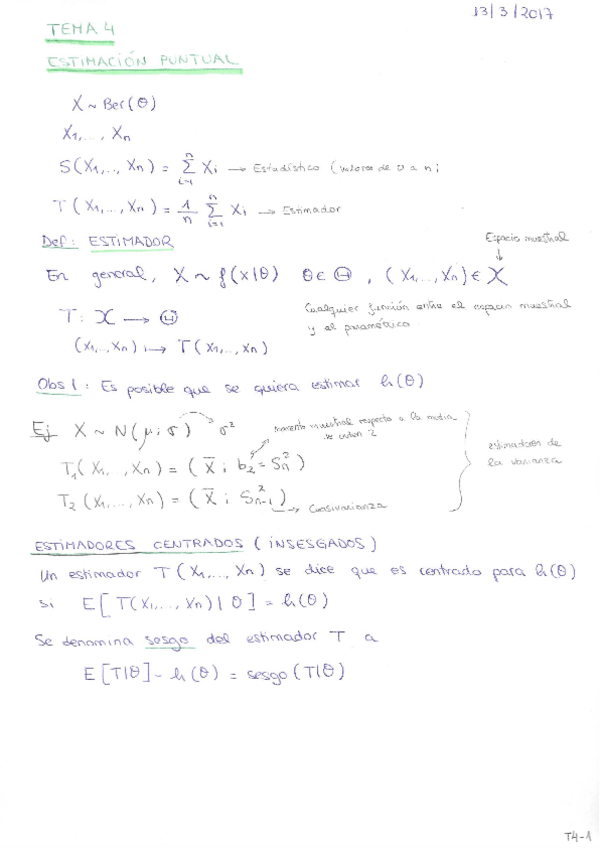 13/3/2017
TEMA 4
ESTIMACIÓN PUNTUAL
X ~ Ber(θ)
X₁,..., Xₙ
S(X₁,..., Xₙ) = Σⁿᵢ₌₁ Xᵢ → Estadístico (valores de 0 a n;
T(X₁,..., Xₙ) = 1/n Σⁿᵢ₌₁ Xᵢ → Estimador
Def: ESTIMADOR
Espacio muestral
En general, X ~ f(x|θ) θ ∈ Θ, (X₁,..., Xₙ) ∈ X
T: X → Θ
Cualquier función entre el espacio muestral
y el paramétrico
(X₁,..., Xₙ) ↦ T(X₁,..., Xₙ)
Obs 1: Es posible que se quiera estimar h(θ)
Ej X ~ N(μ; σ) σ²
momento muestral respecto a la media
de orden 2
T₁(X₁,..., Xₙ) = (X̄; b₂ = Sₙ²)
estimadores de
la varianza
T₂(X₁,..., Xₙ) = (X̄; Sₙ₋₁²) → Cuasivarianza
ESTIMADORES CENTRADOS (INSESGADOS)
Un estimador T(X₁,..., Xₙ) se dice que es centrado para h(θ)
si E[T(X₁,..., Xₙ)|θ] = h(θ)
Se denomina sesgo del estimador T a
E[T|θ] - h(θ) = sesgo(T|θ)
T4-1